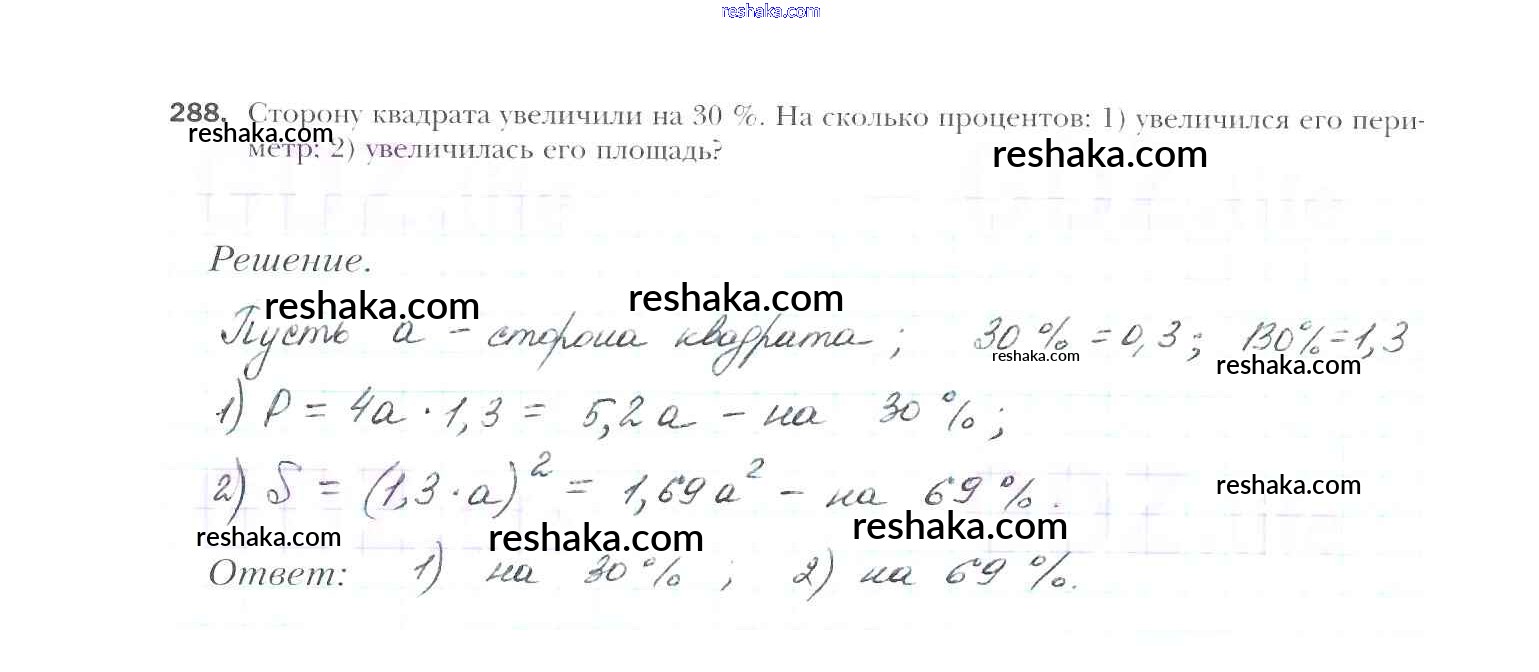 reshaka.com
288. Сторону квадрата увеличили на 30 %. На сколько процентов: 1) увеличился его пери-
reshaka.com
метр; 2) увеличилась его площадь?
reshaka.com
Решение.
reshaka.com reshaka.com
Пусть a – сторона квадрата; 30 % = 0,3; 130% = 1,3
reshaka.com reshaka.com
1) P = 4a · 1,3 = 5,2a – на 30 %;
2) S = (1,3 · a)² = 1,69a² – на 69 %.
reshaka.com
reshaka.com reshaka.com reshaka.com
Ответ: 1) на 30 % ; 2) на 69 %.